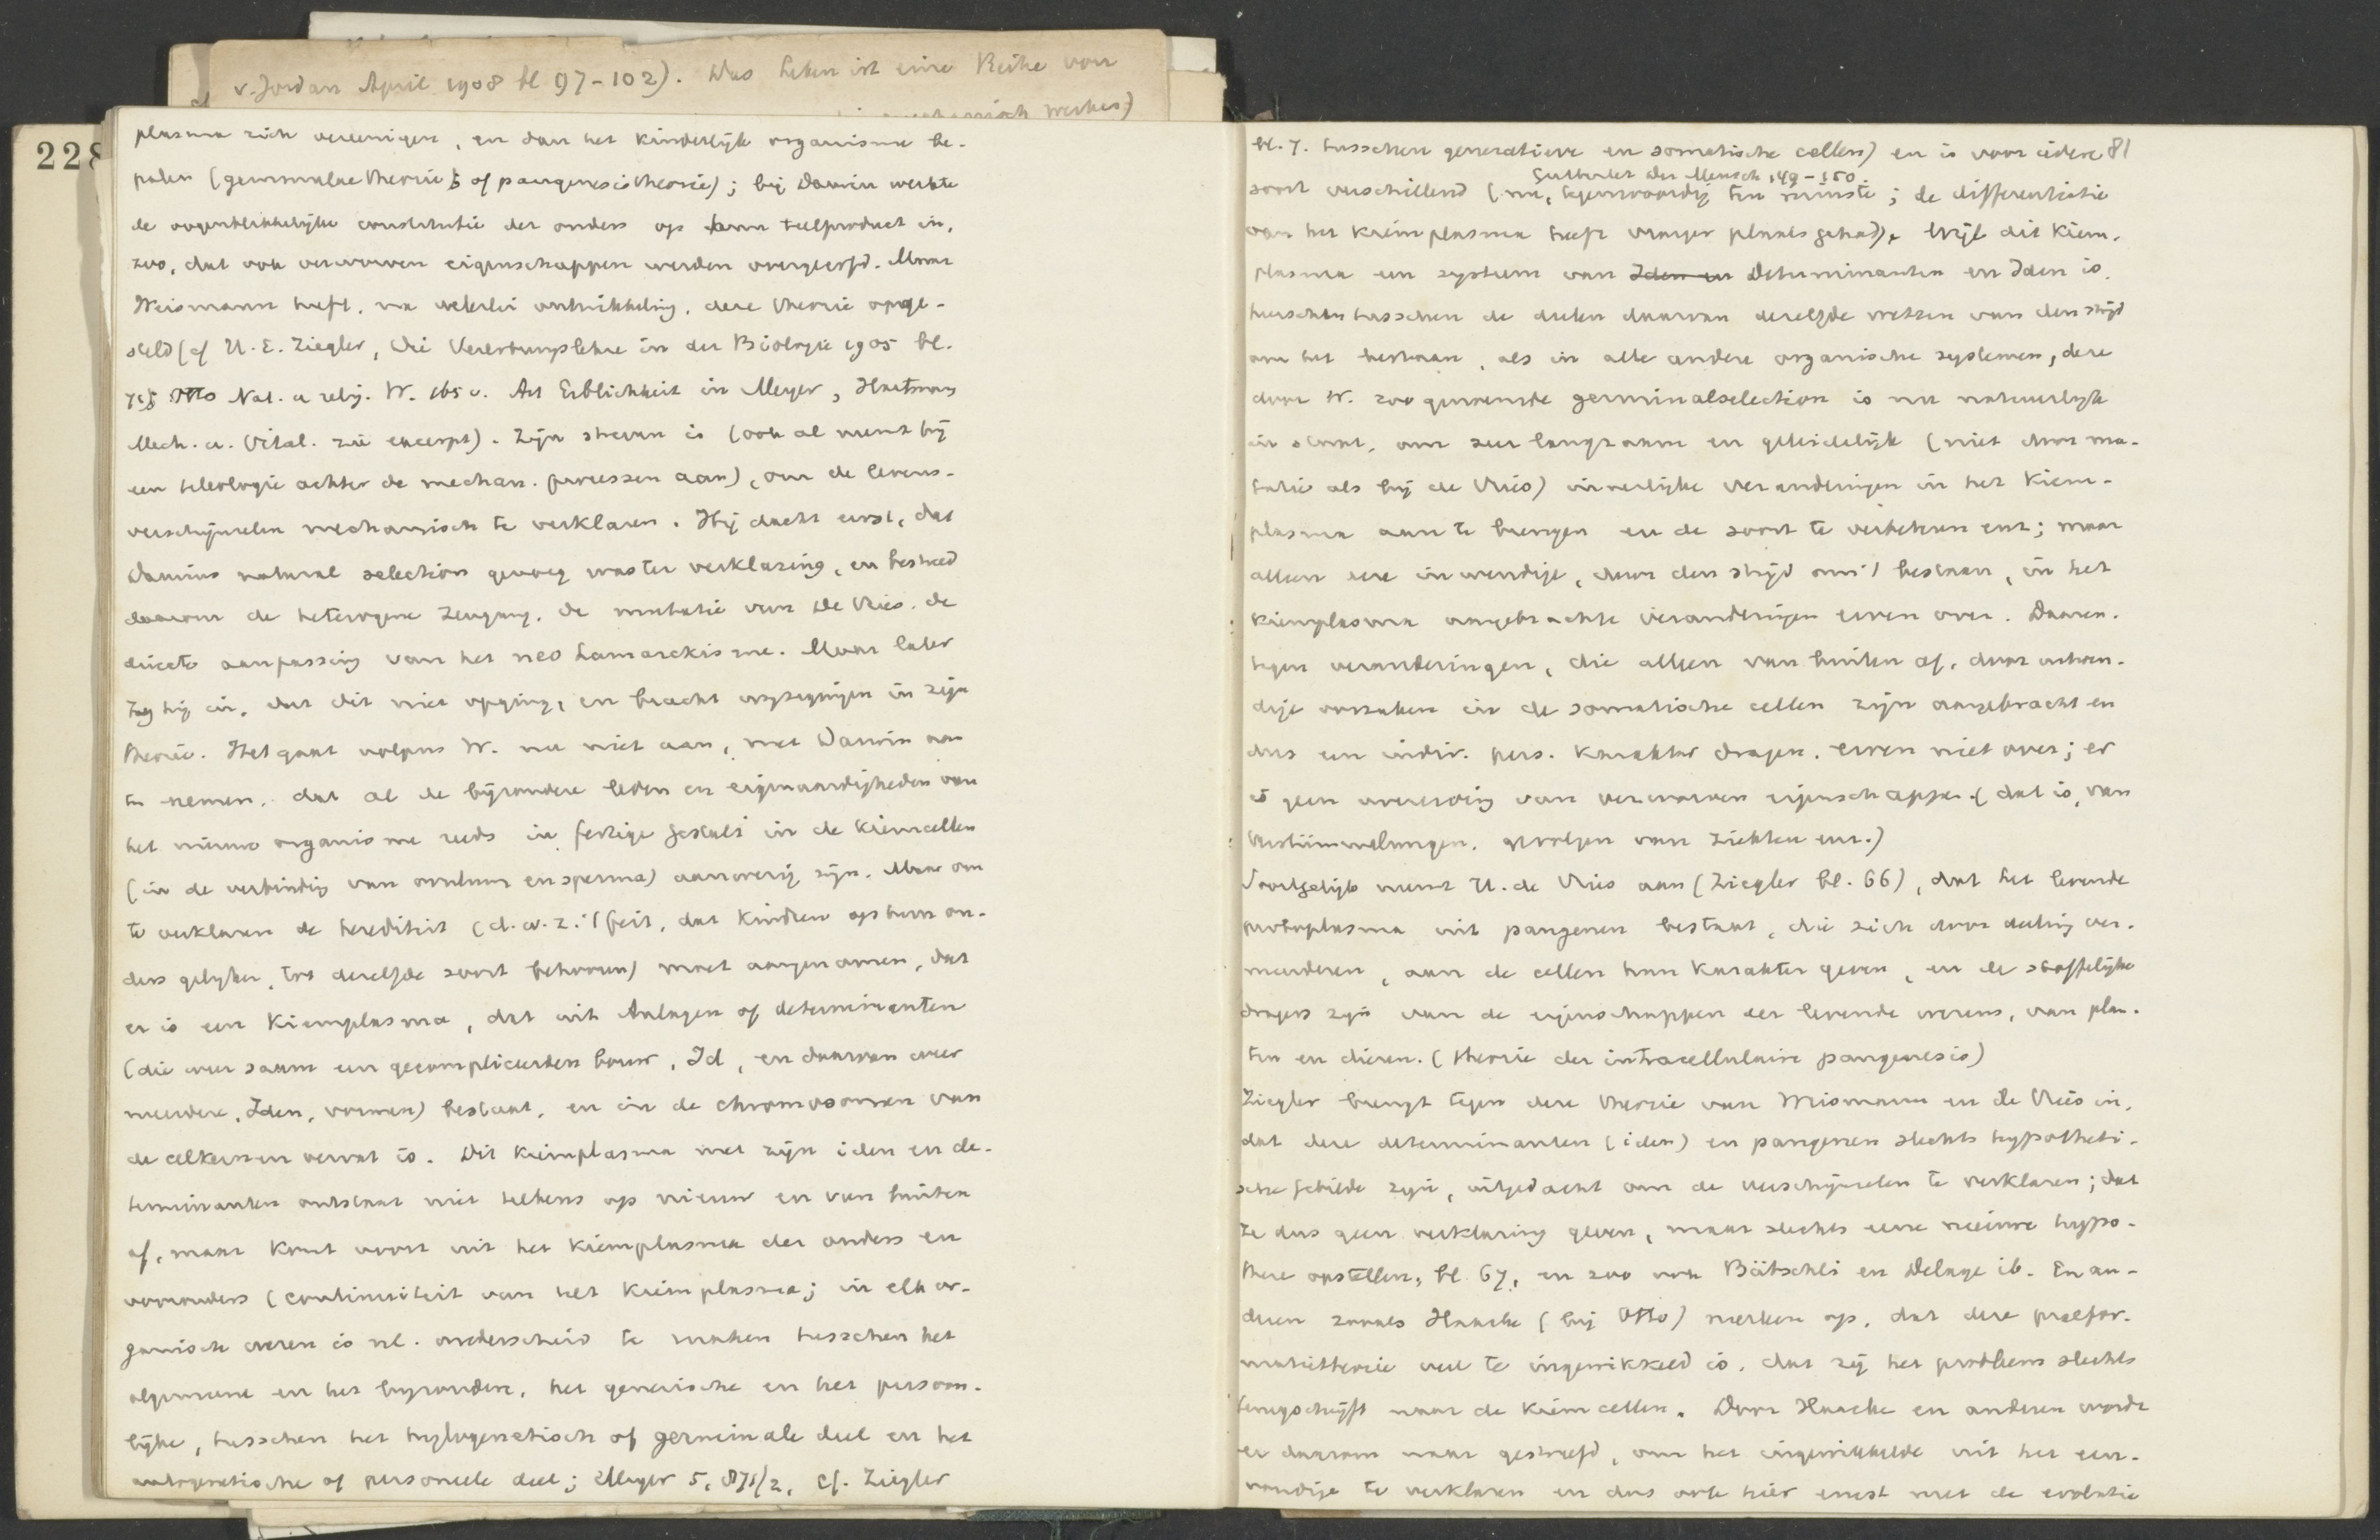 v. Jordan April 1908 bl 97-102). Das Leben ist eine Reihe von
228
plasma zich vereenigen, en dan het kinderlijk organisme be-
palen (gemmulae theorie of pangenesis theorie); bij Darwin werkte
de oogenblikkelijke constitutie der ouders op hun teelproduct in,
zoo, dat ook verworven eigenschappen werden overgeërfd. Maar
Weismann heeft, na velerlei ontwikkeling, deze theorie opge-
steld (cf H. E. Ziegler, Die Vererbungslehre in der Biologie 1905 bl.
Otto Nat. u relig. W. 165 v. Art Erblichkeit in Meyer, Hartmann
Mech. u. Vital. zie excerpt). Zijn streven is (ook al neemt hij
een teleologie achter de mechan. processen aan), om de levens-
verschijnselen mechanisch te verklaren. Hij dacht eerst, dat
Darwins natural selection genoeg was ter verklaring, en bestreed
daarom de heterogene Zeugung, de mutatie van De Vries, de
directe aanpassing van het neo Lamarckisme. Maar later
zag hij in, dat dit niet opging, en bracht wijzigingen in zijn
theorie. Het gaat volgens W. nu niet aan, met Darwin aan
te nemen, dat al de bijzondere leden en eigenaardigheden van
het nieuwe organisme reeds in fertige Gestalt in de kiemcellen
(in de verbinding van ovulum en sperma) aanwezig zijn. Maar om
te verklaren de herediteit (d. w. z. 't feit, dat kinderen op hun ou-
ders gelijken, tot dezelfde soort behooren) moet aangenomen, dat
er is een Kiemplasma, dat uit Anlagen of determinanten
(die weer saam een gecompliceerden bouw, Id, en daarvan weer
meerdere, Iden, vormen) bestaat, en in de chromosomen van
de celkernen vervat is. Dit kiemplasma met zijn iden en de-
terminanten ontstaat niet telkens op nieuw en van buiten
af, maar komt voort uit het kiemplasma der ouders en
voorouders (continuiteit van het kiemplasma; in elk or-
ganisch wezen is nl. onderscheid te maken tusschen het
algemeene en het bijzondere, het generische en het persoon-
lijke, tusschen het phylogenetisch of germinale deel en het
ontogenetische of personeele deel; Meyer 5, 871/2, cf. Ziegler
81
bl. 7. tusschen generatieve en somatische cellen) en is voor iedere
Gutberlet Der Mensch 149-150.
soort verschillend (nu, tegenwoordig ten minste; de differentiatie
van het kiemplasma heeft vroeger plaats gehad). Wijl dit kiem-
plasma een systeem van Iden en Determinanten en Iden is,
heerscht tusschen de deelen daarvan dezelfde wetten van den strijd
om het bestaan, als in alle andere organische systemen, deze
door W. zoo genoemde germinalselection is nu natuurlijk
in staat, om zeer langzaam en geleidelijk (niet door mu-
tatie als bij de Vries) innerlijke veranderingen in het kiem-
plasma aan te brengen en de soort te verbeteren enz; maar
alleen deze inwendige, door den strijd om 't bestaan, in het
kiemplasma aangebrachte veranderingen erven over. Daaren-
tegen veranderingen, die alleen van buiten af, door uitwen-
dige oorzaken in de somatische cellen zijn aangebracht en
dus een indiv. pers. karakter dragen, erven niet over; er
is geen overerving van verworven eigenschappen (dat is, van
Verstümmelungen, gevolgen van ziekten enz.)
Voorts neemt H. de Vries aan (Ziegler bl. 66), dat het levende
protoplasma uit pangenen bestaat, die zich door deeling ver-
meerderen, aan de cellen hun karakter geven, en de stoffelijke
dragers zijn van de eigenschappen der levende wezens, van plan-
ten en dieren. (theorie der intracellulaire pangenesis)
Ziegler brengt tegen deze theorie van Weismann en de Vries in,
dat deze determinanten (iden) en pangenen slechts hypotheti-
sche Gebilde zijn, uitgedacht om de verschijnselen te verklaren; dat
ze dus geen verklaring geven, maar slechts eene nieuwe hypo-
these opstellen, bl. 67, en zoo ook Bütschli en Delage ib. En an-
deren zooals Haacke (bij Otto) merken op, dat deze praefor-
matietheorie veel te ingewikkeld is, dat zij het probleem slechts
terugschuift naar de kiemcellen. Door Haacke en anderen wordt
er daarom naar gestreefd, om het ingewikkelde uit het een-
voudige te verklaren en dus ook hier ernst met de evolutie